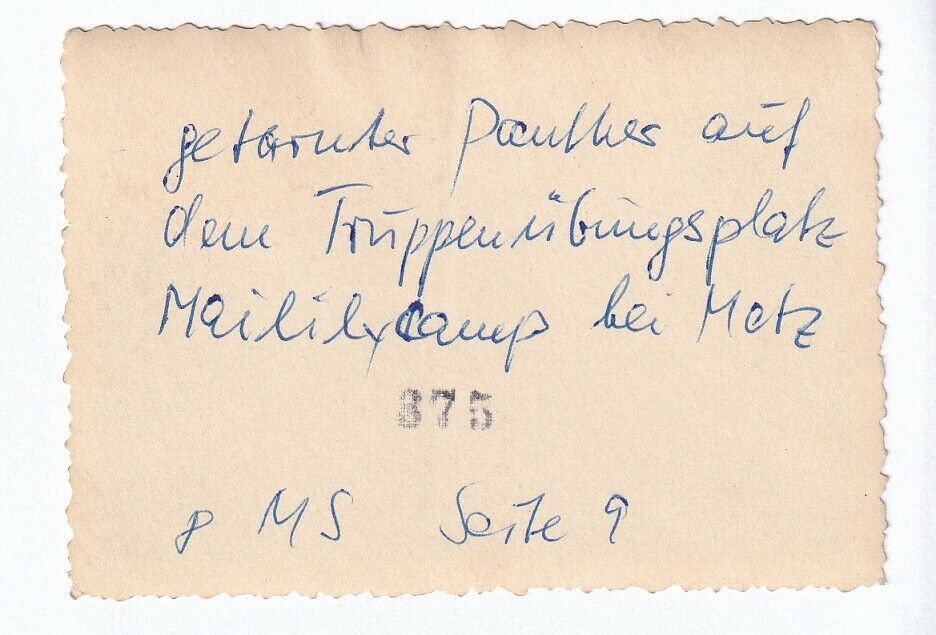 getarnter Panther auf
dem Truppenübungsplatz
Maililycamp bei Metz
375
8 MS Seite 9